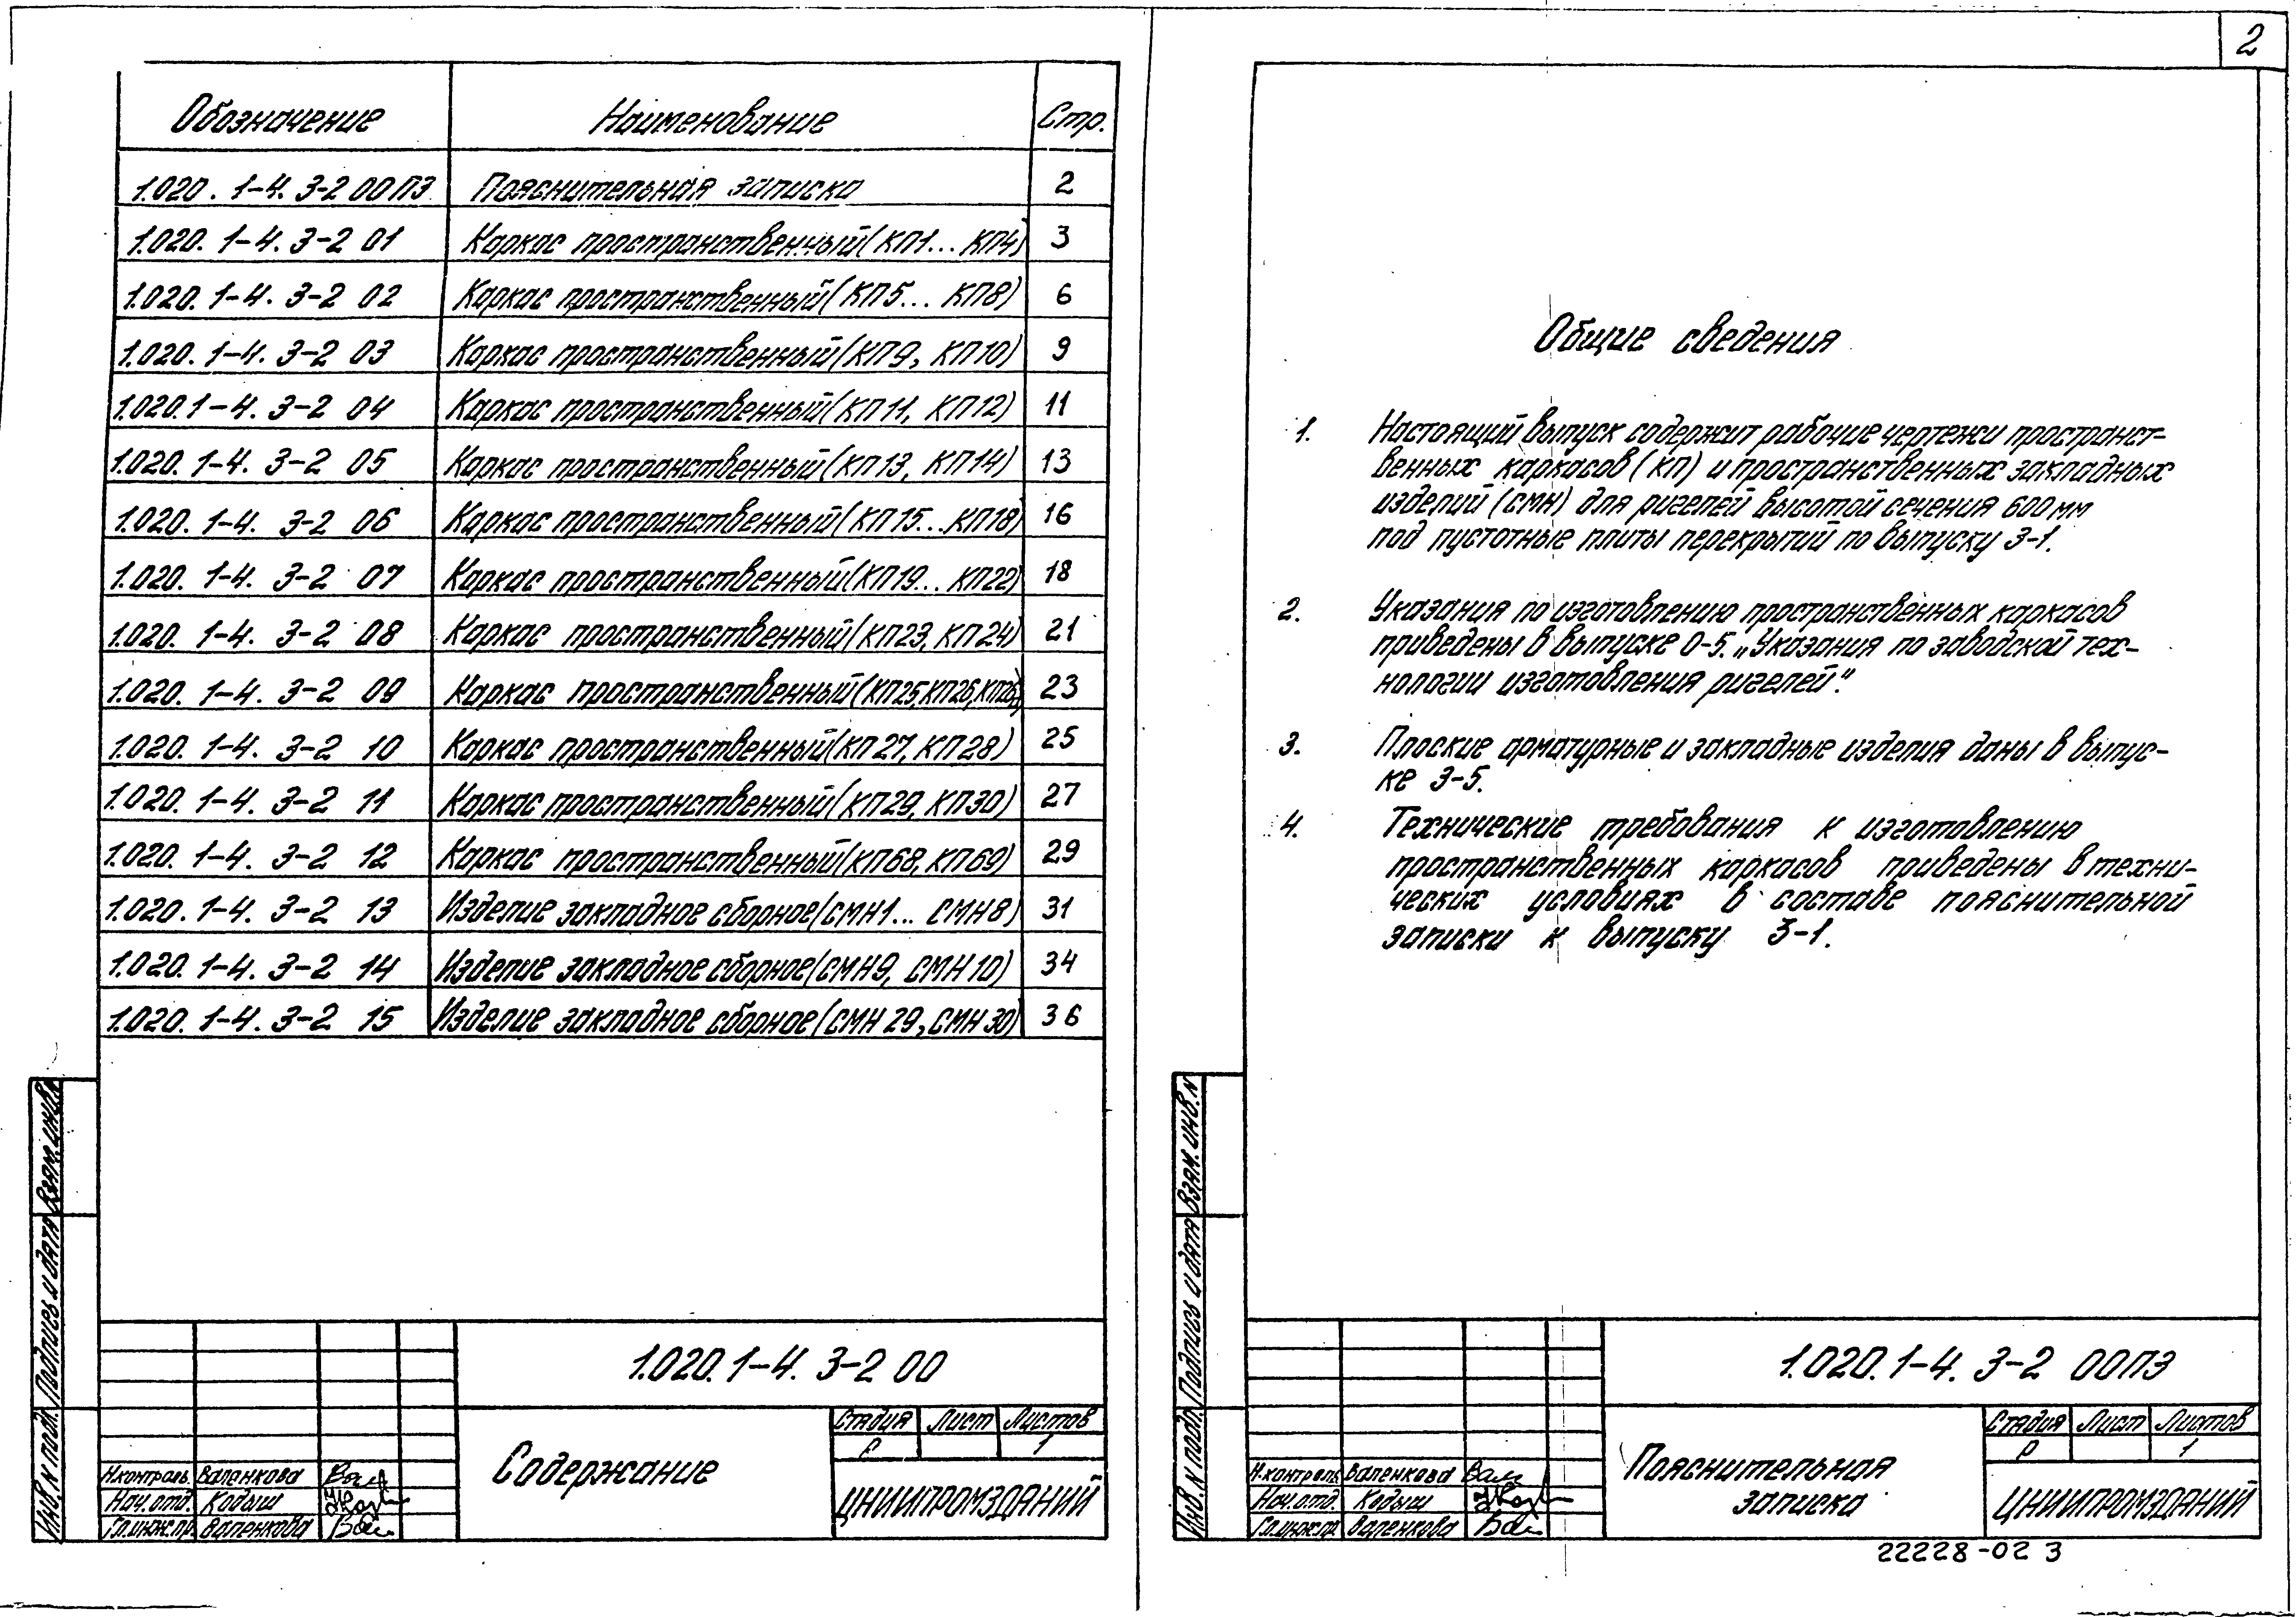 2
Обозначение Наименование Стр.
1.020.1-4. 3-2 00ПЗ Пояснительная записка 2
1.020.1-4. 3-2 01 Каркас пространственный (КП1... КП4) 3
1.020.1-4. 3-2 02 Каркас пространственный (КП5... КП8) 6
1.020.1-4. 3-2 03 Каркас пространственный (КП9, КП10) 9
1.020.1-4. 3-2 04 Каркас пространственный (КП11, КП12) 11
1.020.1-4. 3-2 05 Каркас пространственный (КП13, КП14) 13
1.020.1-4. 3-2 06 Каркас пространственный (КП15... КП18) 16
1.020.1-4. 3-2 07 Каркас пространственный (КП19... КП22) 18
1.020.1-4. 3-2 08 Каркас пространственный (КП23, КП24) 21
1.020.1-4. 3-2 09 Каркас пространственный (КП25, КП26, 23
1.020.1-4. 3-2 10 Каркас пространственный (КП27, КП28) 25
1.020.1-4. 3-2 11 Каркас пространственный (КП29, КП30) 27
1.020.1-4. 3-2 12 Каркас пространственный (КП68, КП69) 29
1.020.1-4. 3-2 13 Изделие закладное сборное (СМН1... СМН8) 31
1.020.1-4. 3-2 14 Изделие закладное сборное (СМН9, СМН10) 34
1.020.1-4. 3-2 15 Изделие закладное сборное (СМН29, СМН30) 36
Взам. инв. N
Подпись и дата
Инв. N подл.
1.020.1-4. 3-2 00
Содержание
Стадия Лист Листов
Р 1
ЦНИИПРОМЗДАНИЙ
Н.контроль Валенкова
Нач.отд. Кодыш
Гл.инж.пр. Валенкова
Общие сведения
1. Настоящий выпуск содержит рабочие чертежи пространст-
венных каркасов (КП) и пространственных закладных
изделий (СМН) для ригелей высотой сечения 600 мм
под пустотные плиты перекрытий по выпуску 3-1.
2. Указания по изготовлению пространственных каркасов
приведены в выпуске 0-5. „Указания по заводской тех-
нологии изготовления ригелей".
3. Плоские арматурные и закладные изделия даны в выпус-
ке 3-5.
4. Технические требования к изготовлению
пространственных каркасов приведены в техни-
ческих условиях в составе пояснительной
записки к выпуску 3-1.
Взам. инв. N
Подпись и дата
Инв. N подл.
1.020.1-4. 3-2 00ПЗ
Пояснительная
записка
Стадия Лист Листов
Р 1
ЦНИИПРОМЗДАНИЙ
Н.контроль Валенкова
Нач.отд. Кодыш
Гл.инж.пр. Валенкова
22228-02 3